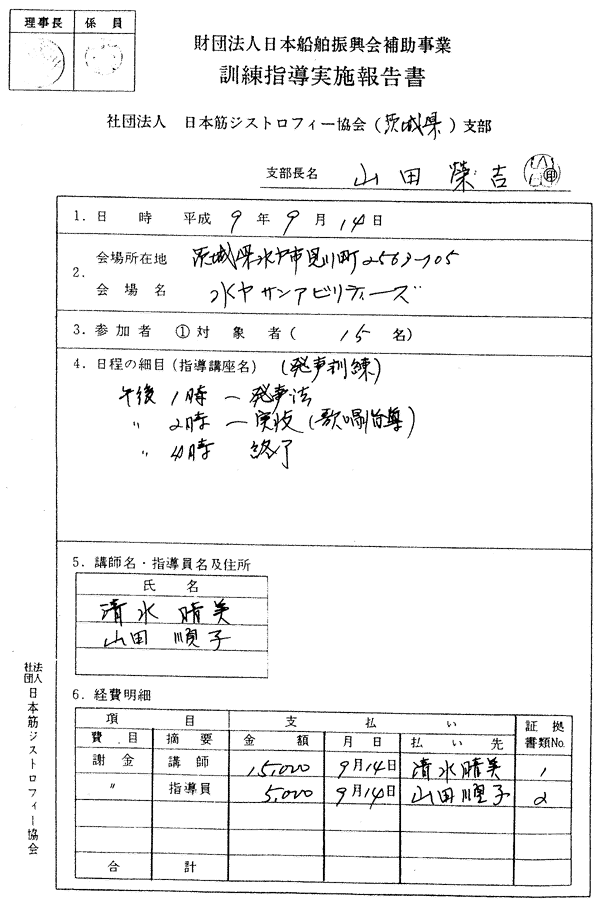 理事長 係員
財団法人日本船舶振興会補助事業
訓練指導実施報告書
社団法人 日本筋ジストロフィー協会（茨城県）支部
支部長名 山田榮吉 ㊞
1. 日時 平成9年9月14日
2. 会場所在地 茨城県水戸市見川町2563-705
会場名 水戸サンアビリティーズ
3. 参加者 ①対象者（ 15名）
4. 日程の細目（指導講座名） （発声訓練）
午後 1時 ― 発声法
〃 2時 ― 実技（歌唱指導）
〃 4時 終了
5. 講師名・指導員名及住所
氏名
清水晴美
山田順子
6. 経費明細
項目 支払い 証拠書類No.
費目 摘要 金額 月日 払い先
謝金 講師 15,000 9月14日 清水晴美 1
〃 指導員 5,000 9月14日 山田順子 2
合計
社団法人 日本筋ジストロフィー協会